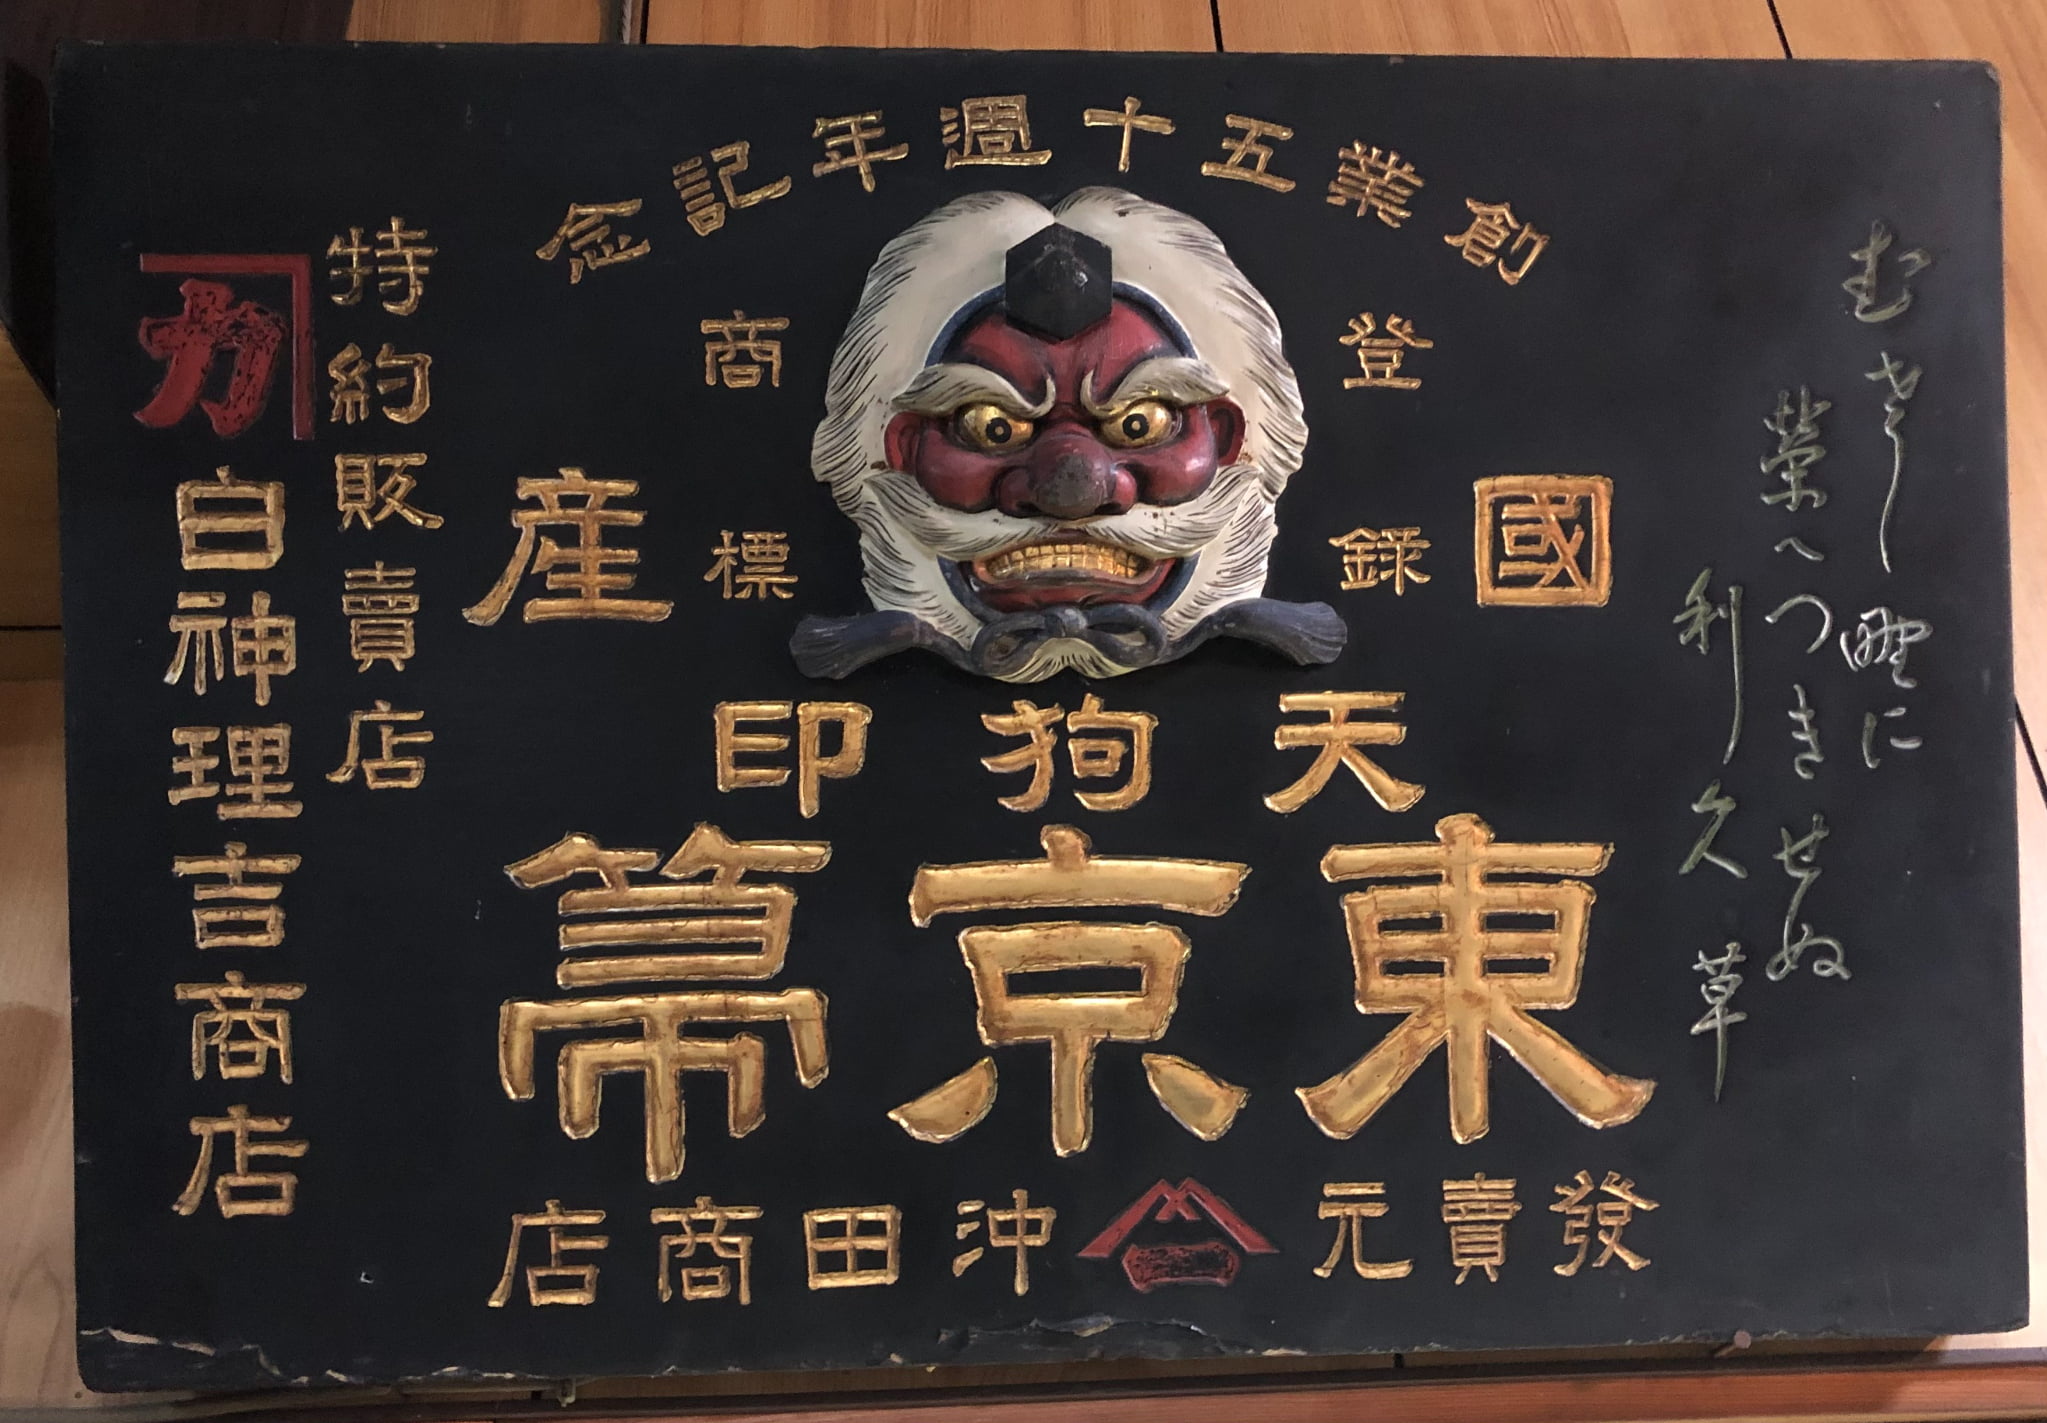 むさし野に
榮へつきせぬ
利久草
創業五十週年記念
登録商標
國産
天狗印
東京箒
發賣元 沖田商店
特約販賣店
カ 白神理吉商店